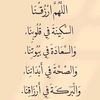 اللَّهُمَّ ارْزُقْنَا
السَّكِينَةَ فِي قُلُوبِنَا،
وَالسَّعَادَةَ فِي بُيُوتِنَا،
وَالصِّحَّةَ فِي أَبْدَانِنَا،
وَالْبَرَكَةَ فِي أَرْزَاقِنَا.